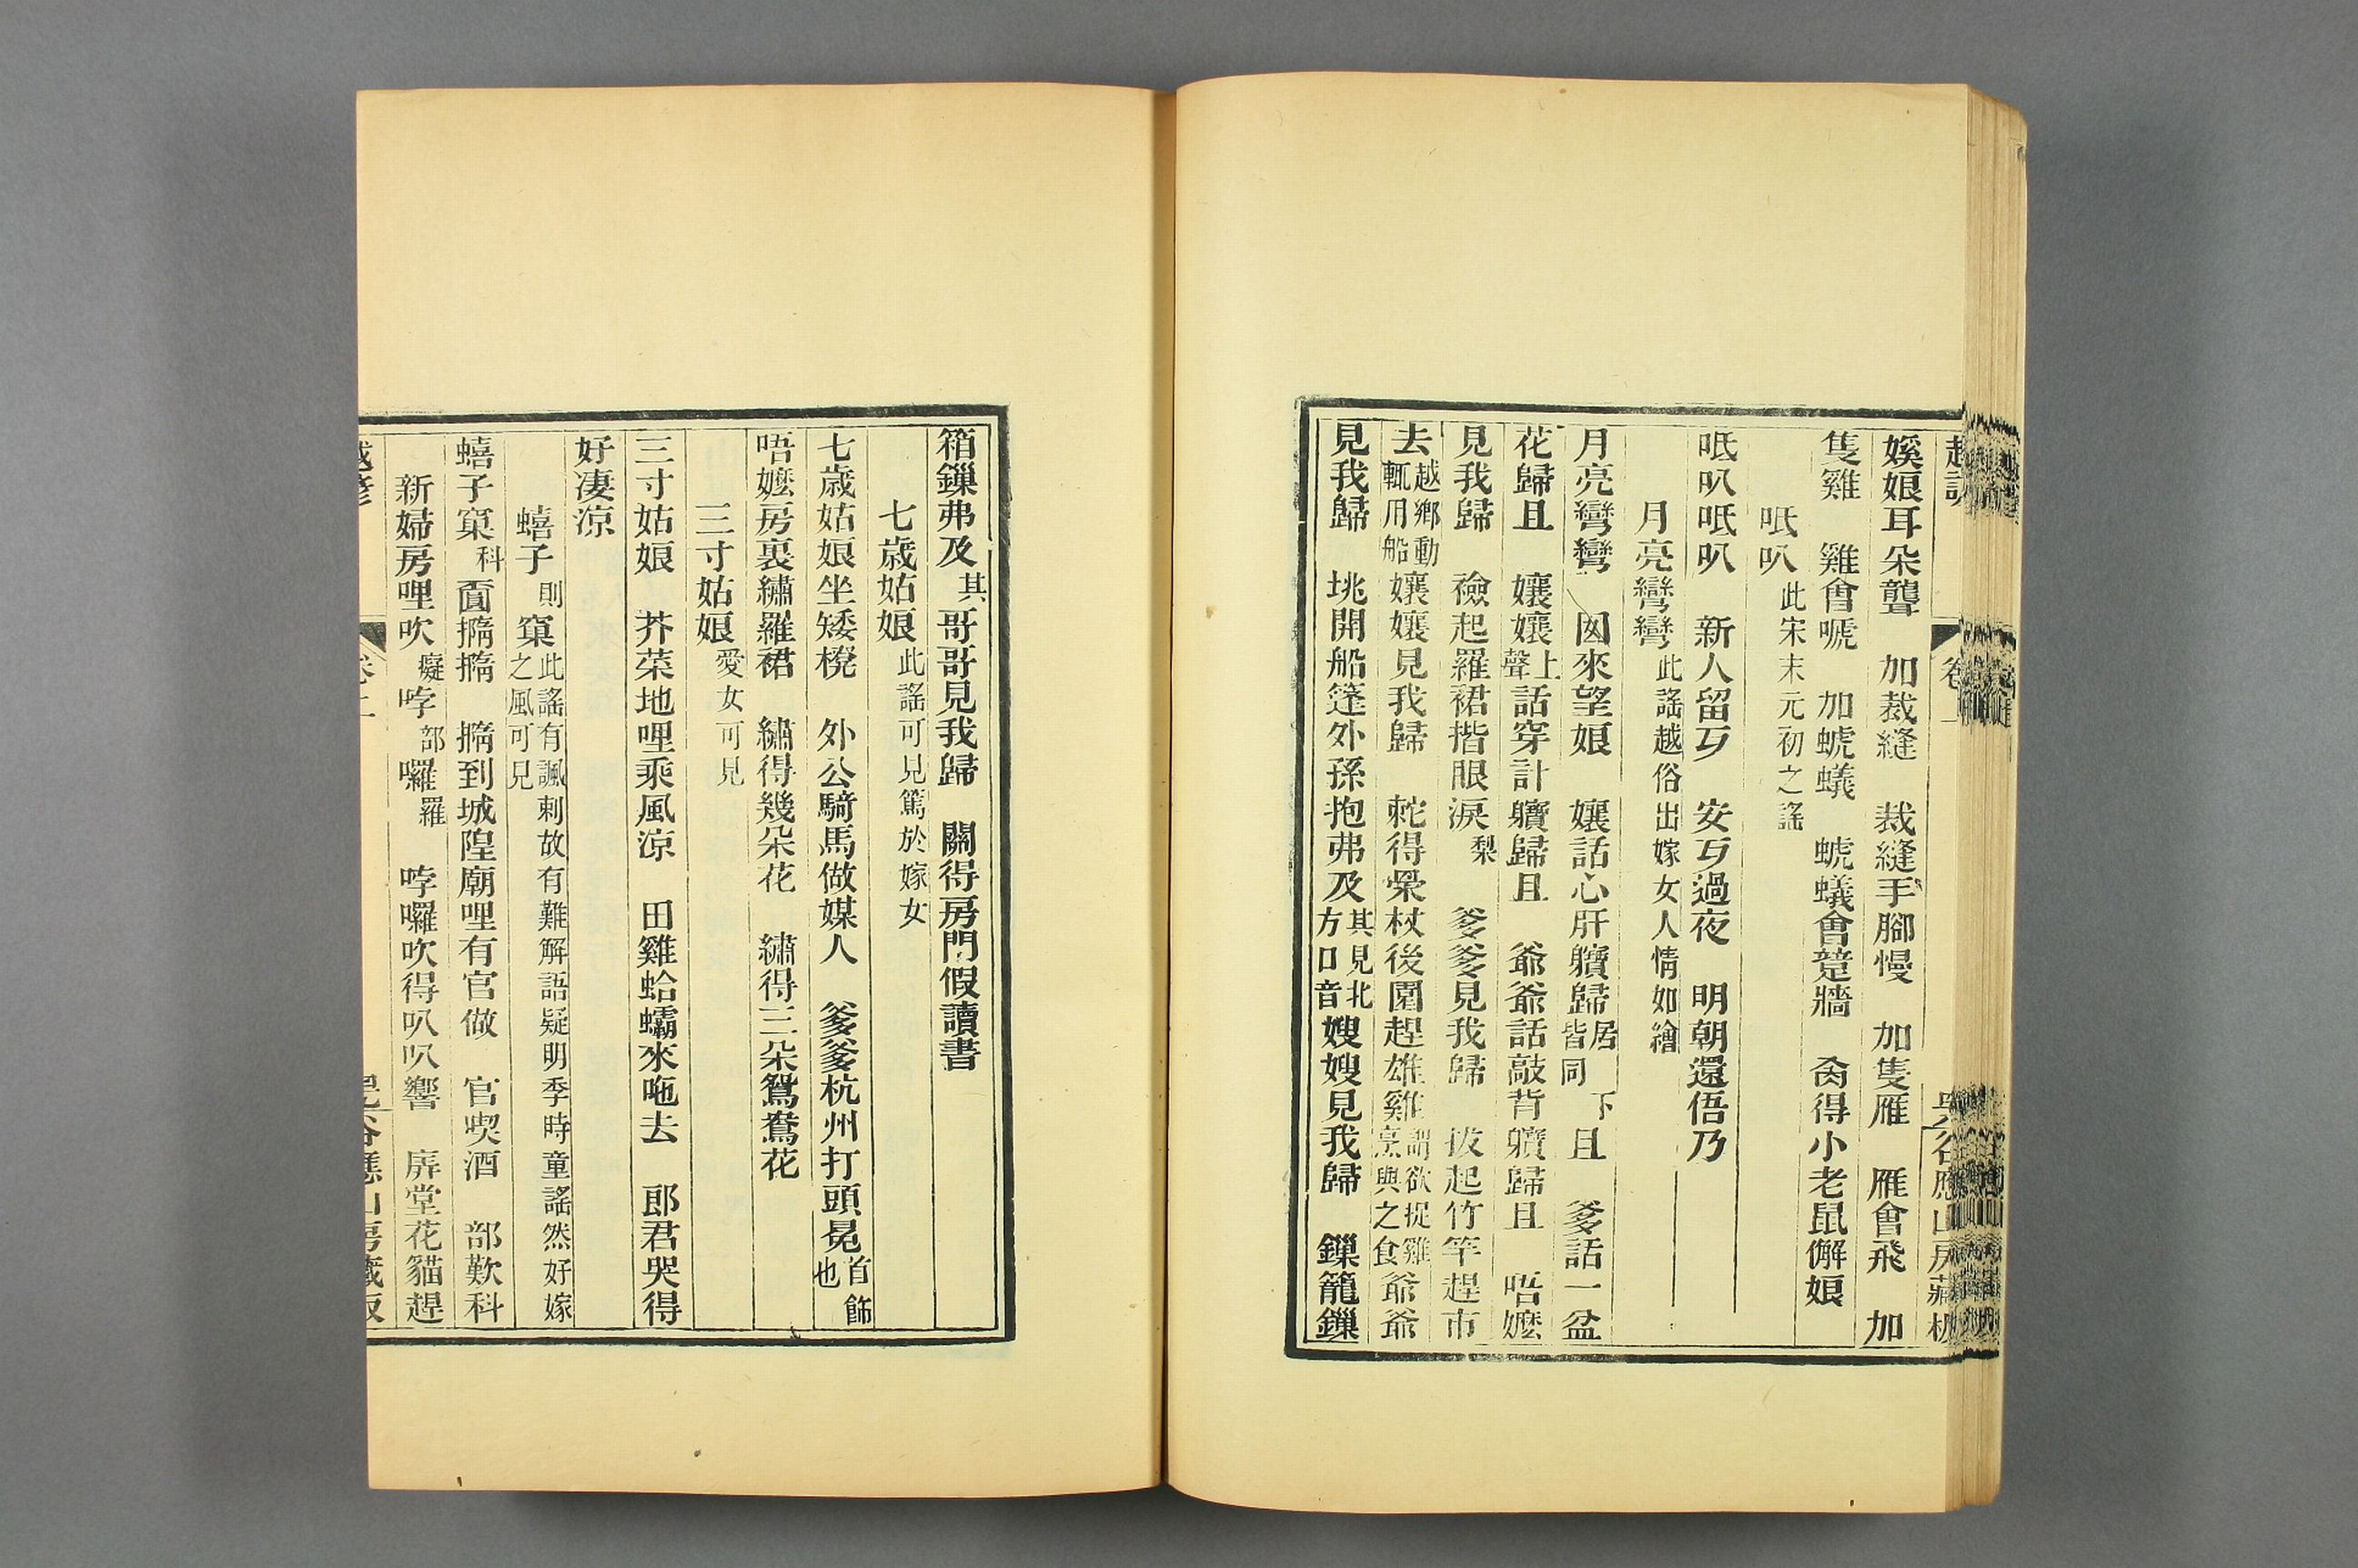 媄娘耳朵聾　加裁縫　裁縫手腳慢　加隻雁　雁會飛　加
隻雞　雞會嗁　加螔蟻　螔蟻會躄牆　㕯得小老鼠懈娘
呧叭此宋末元初之謠
呧叭呧叭　新人留歹　安歹過夜　明朝還俉乃
月亮彎彎此謠越俗出嫁女人情如繪
月亮彎彎　囡來望娘　孃話心肝髒歸居下皆同且　爹話一盆
花歸且　孃孃上聲話穿計髒歸且　爺爺話敲背髒歸且　唔嬤
見我歸　襝起羅裙揩眼淚梨　爹爹見我歸　拔起竹竿趕市
去越鄉動輒用船孃孃見我歸　䠤得柺杖後園趕雄雞謂欲捉雞烹與之食爺爺
見我歸　挑開船篷外孫抱弗及其見北方口音嫂嫂見我歸　鏁籠鏁
箱鏁弗及其哥哥見我歸　關得房門假讀書
七歲姑娘此謠可見篤於嫁女
七歲姑娘坐矮櫈　外公騎馬做媒人　爹爹杭州打頭冕首飾也
唔嬤房裏繡羅裙　繡得幾朵花　繡得三朵鴛鴦花
三寸姑娘愛女可見
三寸姑娘　芥菜地哩乘風涼　田雞蛤蠕來咃去　郎君哭得
好凄涼
蟢子則窠此謠有諷刺故有難解語疑明季時童謠然好嫁之風可見
蟢子窠科靣撱撱　撱到城隍廟哩有官做　官喫酒　部歎科
新婦房哩吹癡哱部囉羅　哱囉吹得叭叭響　庌堂花貓趕